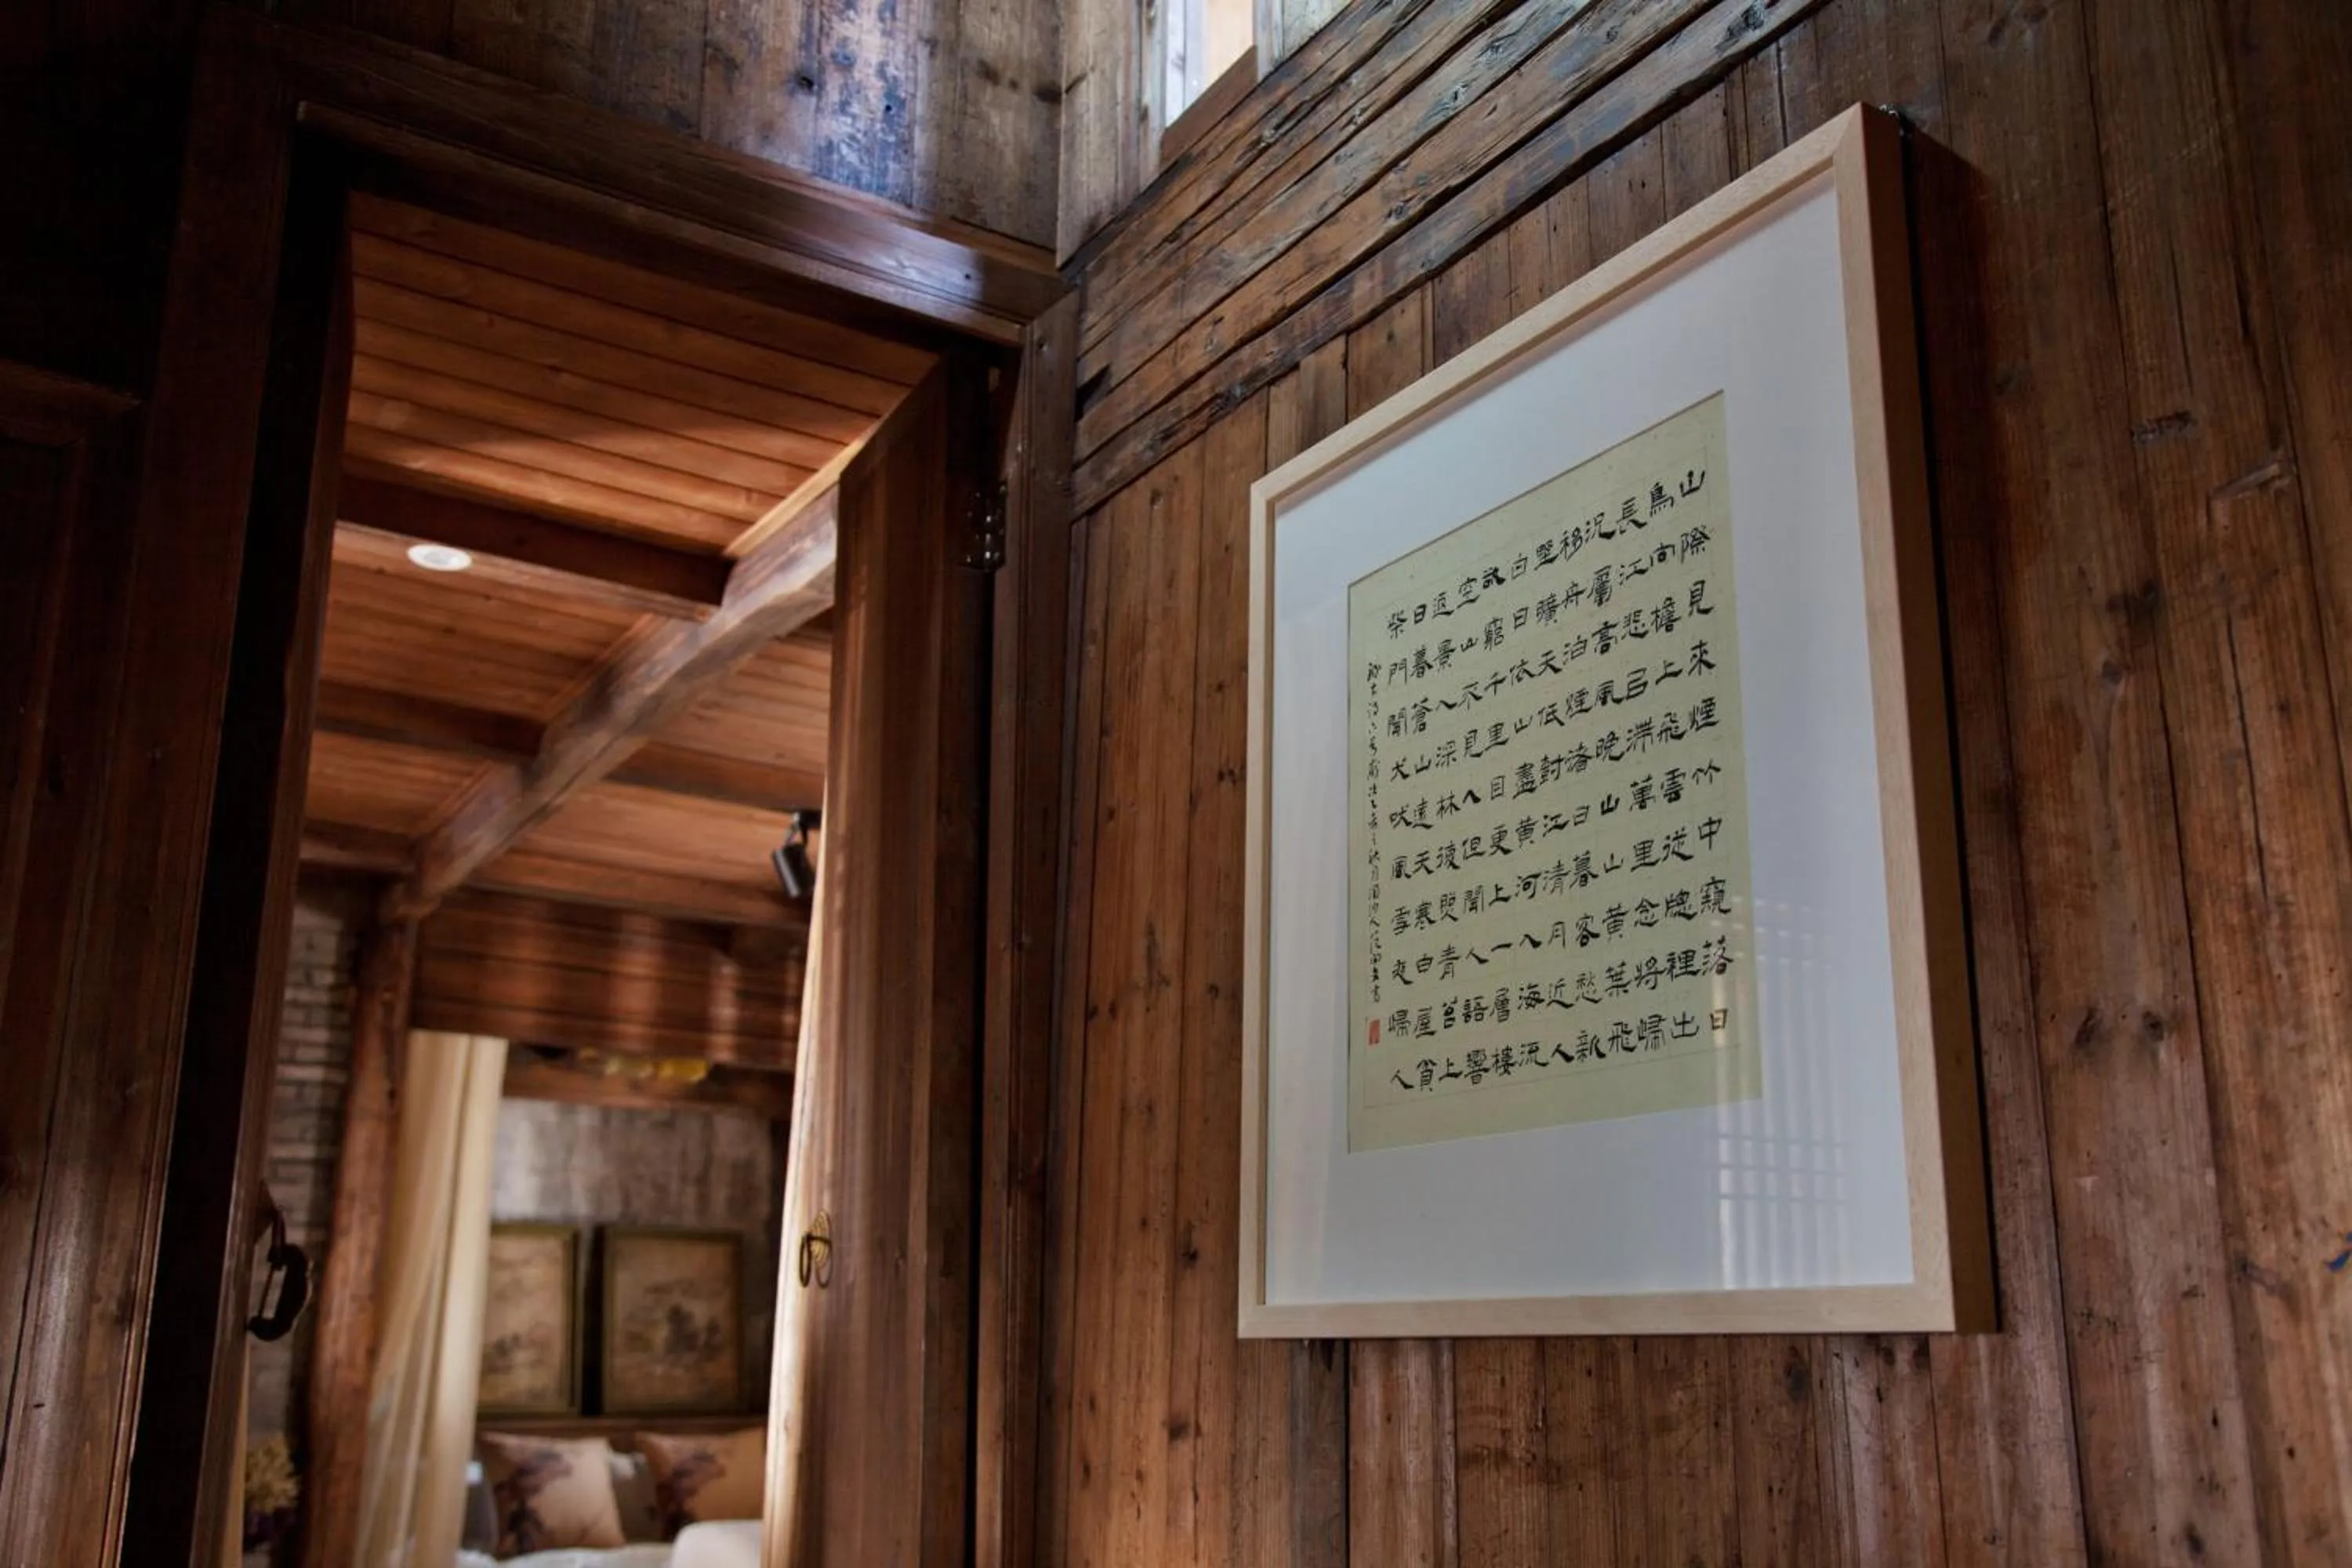 山際見來煙竹中窺落日
鳥向檐上飛雲從牕裡出
長江悲已滯萬里念將歸
況屬高風晚山山黃葉飛
移舟泊煙渚日暮客愁新
野曠天低樹江清月近人
白日依山盡黃河入海流
欲窮千里目更上一層樓
空山不見人但聞人語響
返景入深林復照青苔上
日暮蒼山遠天寒白屋貧
柴門聞犬吠風雪夜歸人
錄古詩六首歲次乙未之秋月